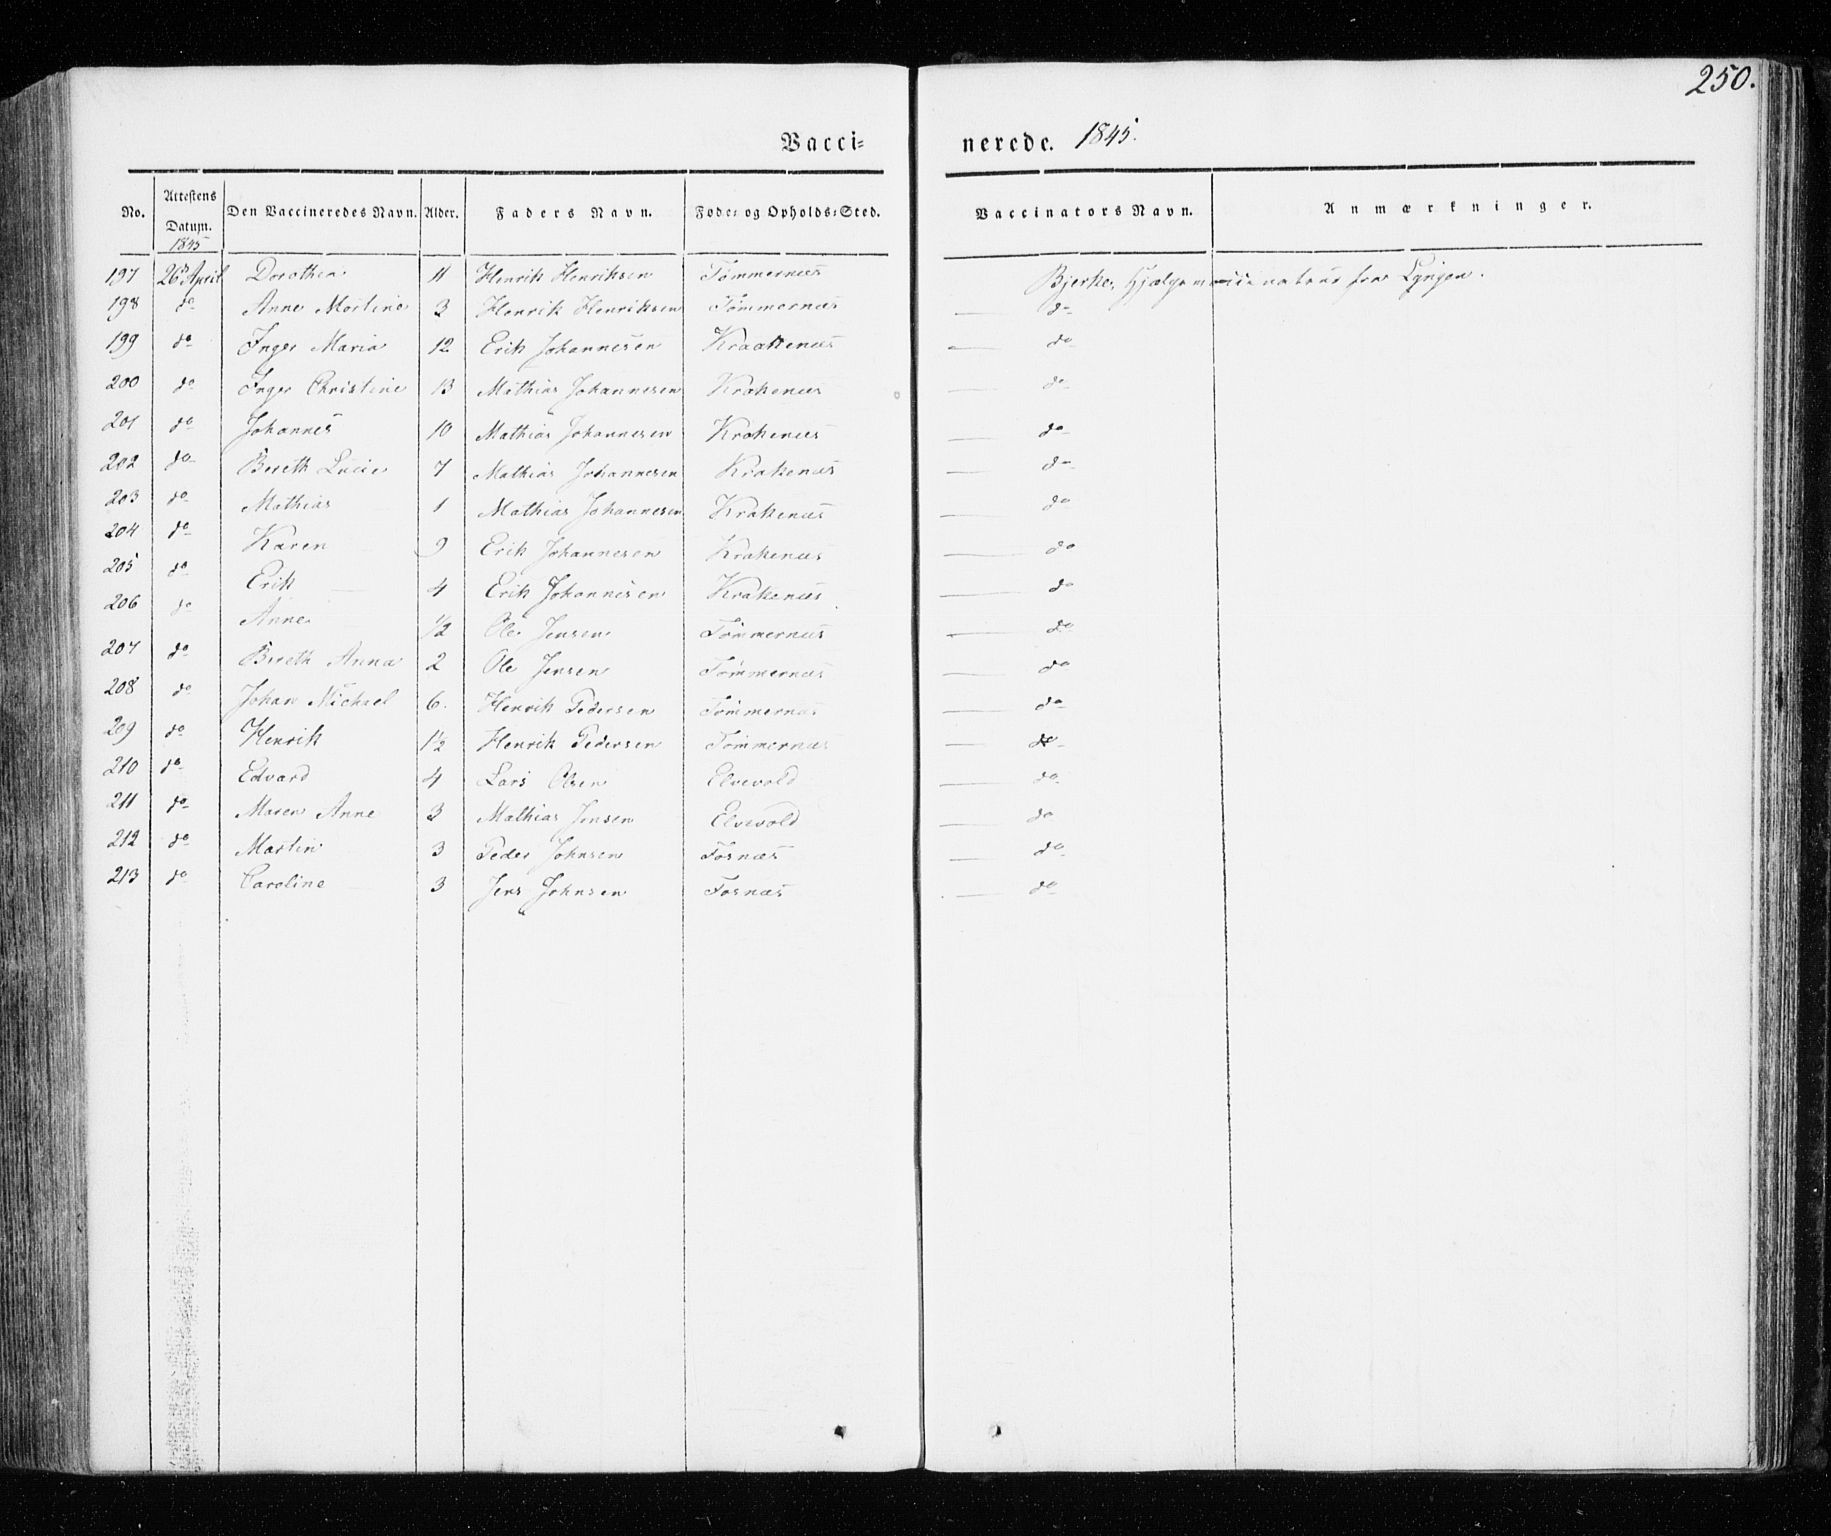 250.
Vacci= nerede. 1845.
No. Attestens Datum. 1845 Den Vaccineredes Navn. Alder. Faders Navn. Føde= og Opholds=Sted. Vaccinators Navn. Anmærkninger.
197 26de April Dorothea 11 Henrik Henriksen Tømmernæs Bjerke, Hjælpevaccinateur fra Lyngen.
198 do Anne Martine 3 Henrik Henriksen Tømmernæs — do
199 do Inger Maria 12 Erik Johannesen Kraakenæs — do
200 do Inger Christine 13 Mathias Johannesen Krakenæs — do
201 do Johannes 10 Mathias Johannesen Krakenæs — do
202 do Bereth Lucie 7 Mathias Johannesen Krakenæs — do
203 do Mathias 1 Mathias Johannesen Krakenæs — do
204 do Karen 9 Erik Johannesen Krakenæs — do
205 do Erik — 4 Erik Johannesen Krakenæs — do
206 do Anne 1/2 Ole Jensen Tømmernæs — do
207 do Bereth Anna 2 Ole Jensen Tømmernæs — do
208 do Johan Michael 6. Henrik Pedersen Tømmernæs — do
209 do Henrik 1 1/2 Henrik Pedersen Tømmernæs — do
210 do Edvard 4 Lars Olsen Elvevold — do
211 do Maren Anne 3 Mathias Jensen Elvevold — do
212 do Martin 3 Peder Johnsen Fornæs — do
213 do Caroline — 3 Jens Johnsen Fornæs — do